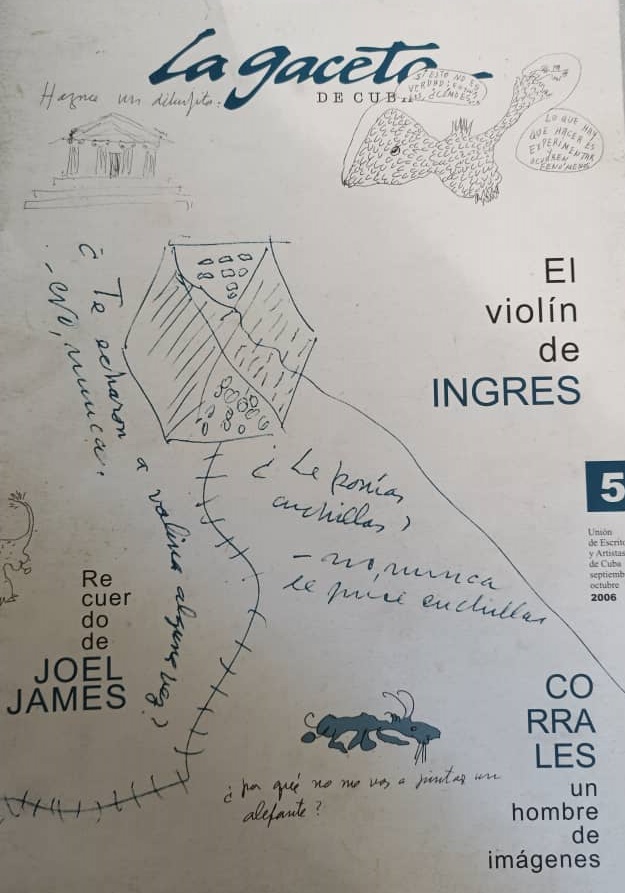 La gaceta
DE CUBA
Hazme un dibujito.
SI ESTO NO ES
VERDAD
LO QUE HAY
QUE HACER ES
EXPERIMENTAR
Y
OCURREN
FENÓMENOS
El
violín
de
INGRES
¿ Te echaron a valina alguna vez?
- No, nunca.
¿ Le ponías
cuchillas?
- no, nunca
le puse cuchillas
5
Unión
de Escrito
y Artistas
de Cuba
septiemb
octubre
2006
Re
cuer
do
de
JOEL
JAMES
CO
RRA
LES
un
hombre
de
imágenes
¿ por qué no me vas a pintar un
alefante?